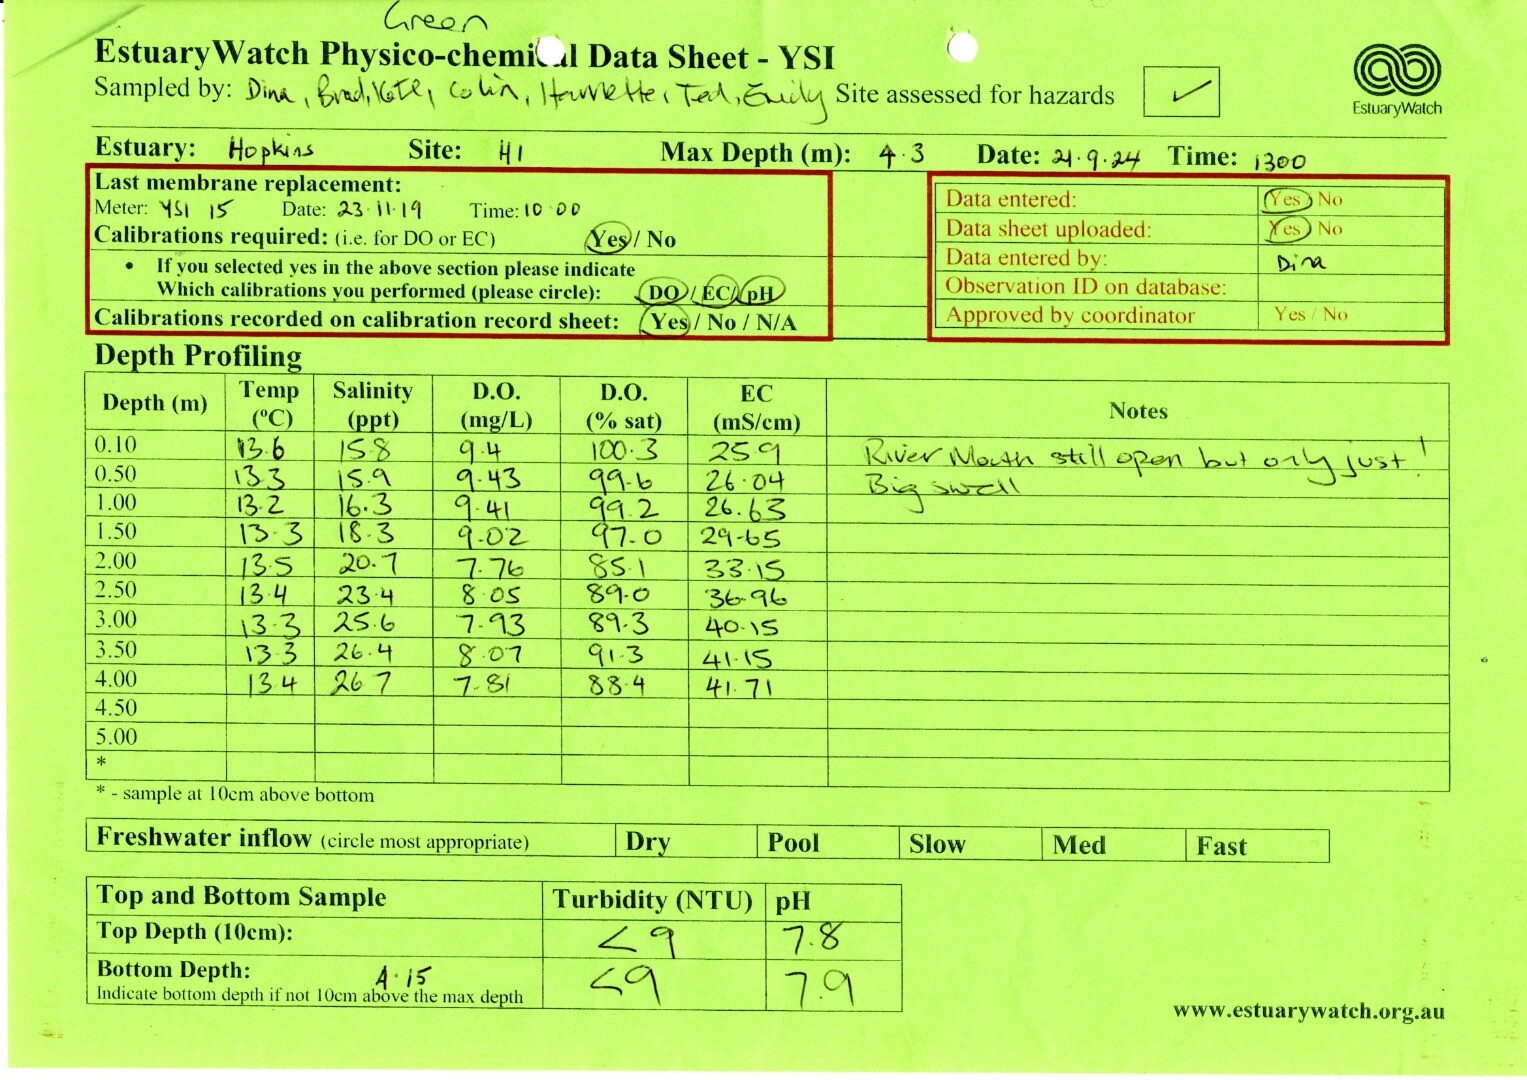 Green
EstuaryWatch Physico-chemical Data Sheet - YSI
Sampled by: Dina, Brad, Kate, Colin, Harriette, Ted, Emily Site assessed for hazards ✓
EstuaryWatch
Estuary: Hopkins Site: H1 Max Depth (m): 4.3 Date: 21.9.24 Time: 1300
Last membrane replacement:
Meter: YSI 15 Date: 23.11.19 Time: 10 00
Calibrations required: (i.e. for DO or EC) Yes / No
• If you selected yes in the above section please indicate
Which calibrations you performed (please circle): DO / EC / pH
Calibrations recorded on calibration record sheet: Yes / No / N/A
Data entered: Yes / No
Data sheet uploaded: Yes / No
Data entered by: Dina
Observation ID on database:
Approved by coordinator Yes / No
Depth Profiling
Depth (m) Temp (ºC) Salinity (ppt) D.O. (mg/L) D.O. (% sat) EC (mS/cm) Notes
0.10 13.6 15.8 9.4 100.3 25.9 River Mouth still open but only just!
0.50 13.3 15.9 9.43 99.6 26.04 Big swell
1.00 13.2 16.3 9.41 99.2 26.63
1.50 13.3 18.3 9.02 97.0 29.65
2.00 13.5 20.7 7.76 85.1 33.15
2.50 13.4 23.4 8.05 89.0 36.96
3.00 13.3 25.6 7.93 89.3 40.15
3.50 13.3 26.4 8.07 91.3 41.15
4.00 13.4 26 7 7.81 88.4 41.71
4.50
5.00
*
* - sample at 10cm above bottom
Freshwater inflow (circle most appropriate) Dry Pool Slow Med Fast
Top and Bottom Sample Turbidity (NTU) pH
Top Depth (10cm): <9 7.8
Bottom Depth: 4.15 <9 7.9
Indicate bottom depth if not 10cm above the max depth
www.estuarywatch.org.au